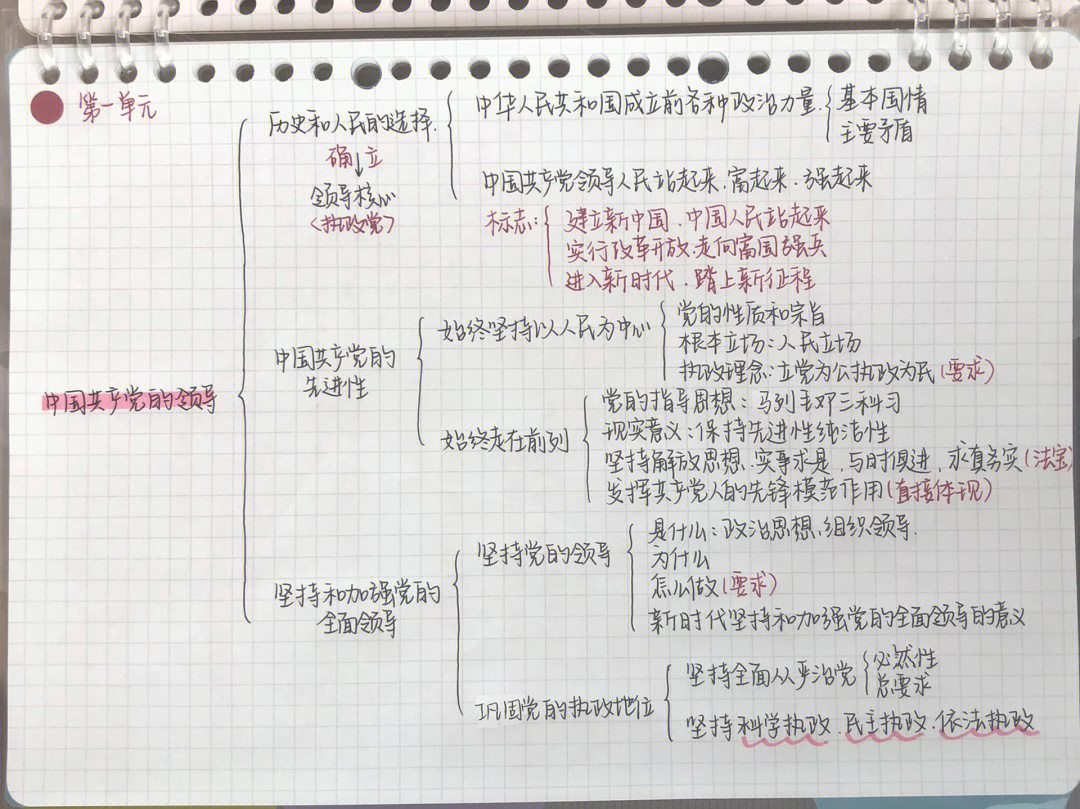 第一单元
历史和人民的选择.
确立
领导核心
<执政党>
中华人民共和国成立前各种政治力量.
基本国情
主要矛盾
中国共产党领导人民站起来.富起来.强起来
标志:
建立新中国.中国人民站起来
实行改革开放.走向富国强兵
进入新时代.踏上新征程
中国共产党的领导
中国共产党的
先进性
始终坚持以人民为中心
党的性质和宗旨
根本立场:人民立场
执政理念:立党为公执政为民(要求)
始终走在前列
党的指导思想:马列毛邓三科习
现实意义:保持先进性纯洁性
坚持解放思想、实事求是,与时俱进,求真务实(法宝)
发挥共产党人的先锋模范作用(直接体现)
坚持和加强党的
全面领导
坚持党的领导
是什么:政治思想、组织领导.
为什么
怎么做(要求)
新时代坚持和加强党的全面领导的意义
巩固党的执政地位
坚持全面从严治党
必然性
总要求
坚持科学执政.民主执政.依法执政